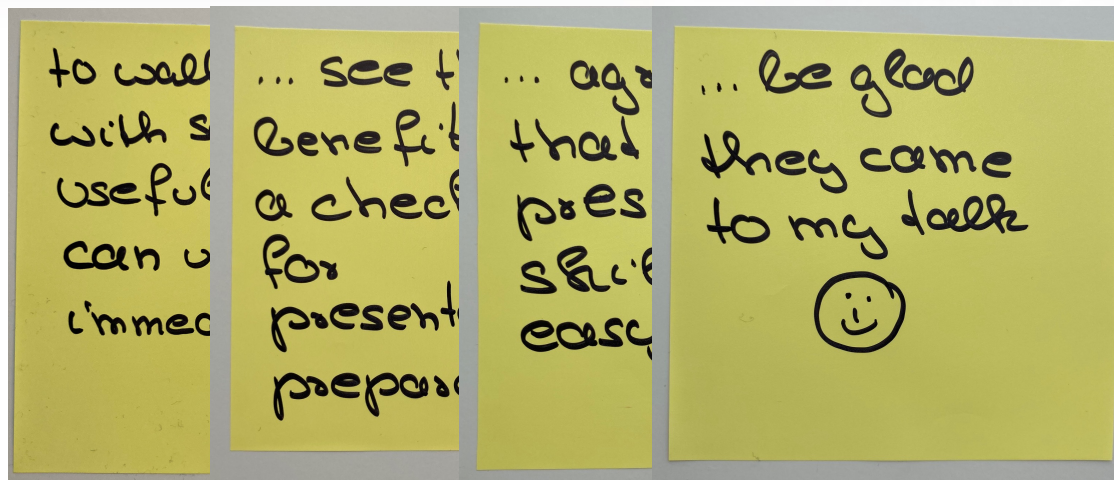 to wal
with s
useful
can u
immed
... see t
benefit
a chec
for
present
prepar
... agr
that
pres
skil
easy
... be glad
they came
to my talk